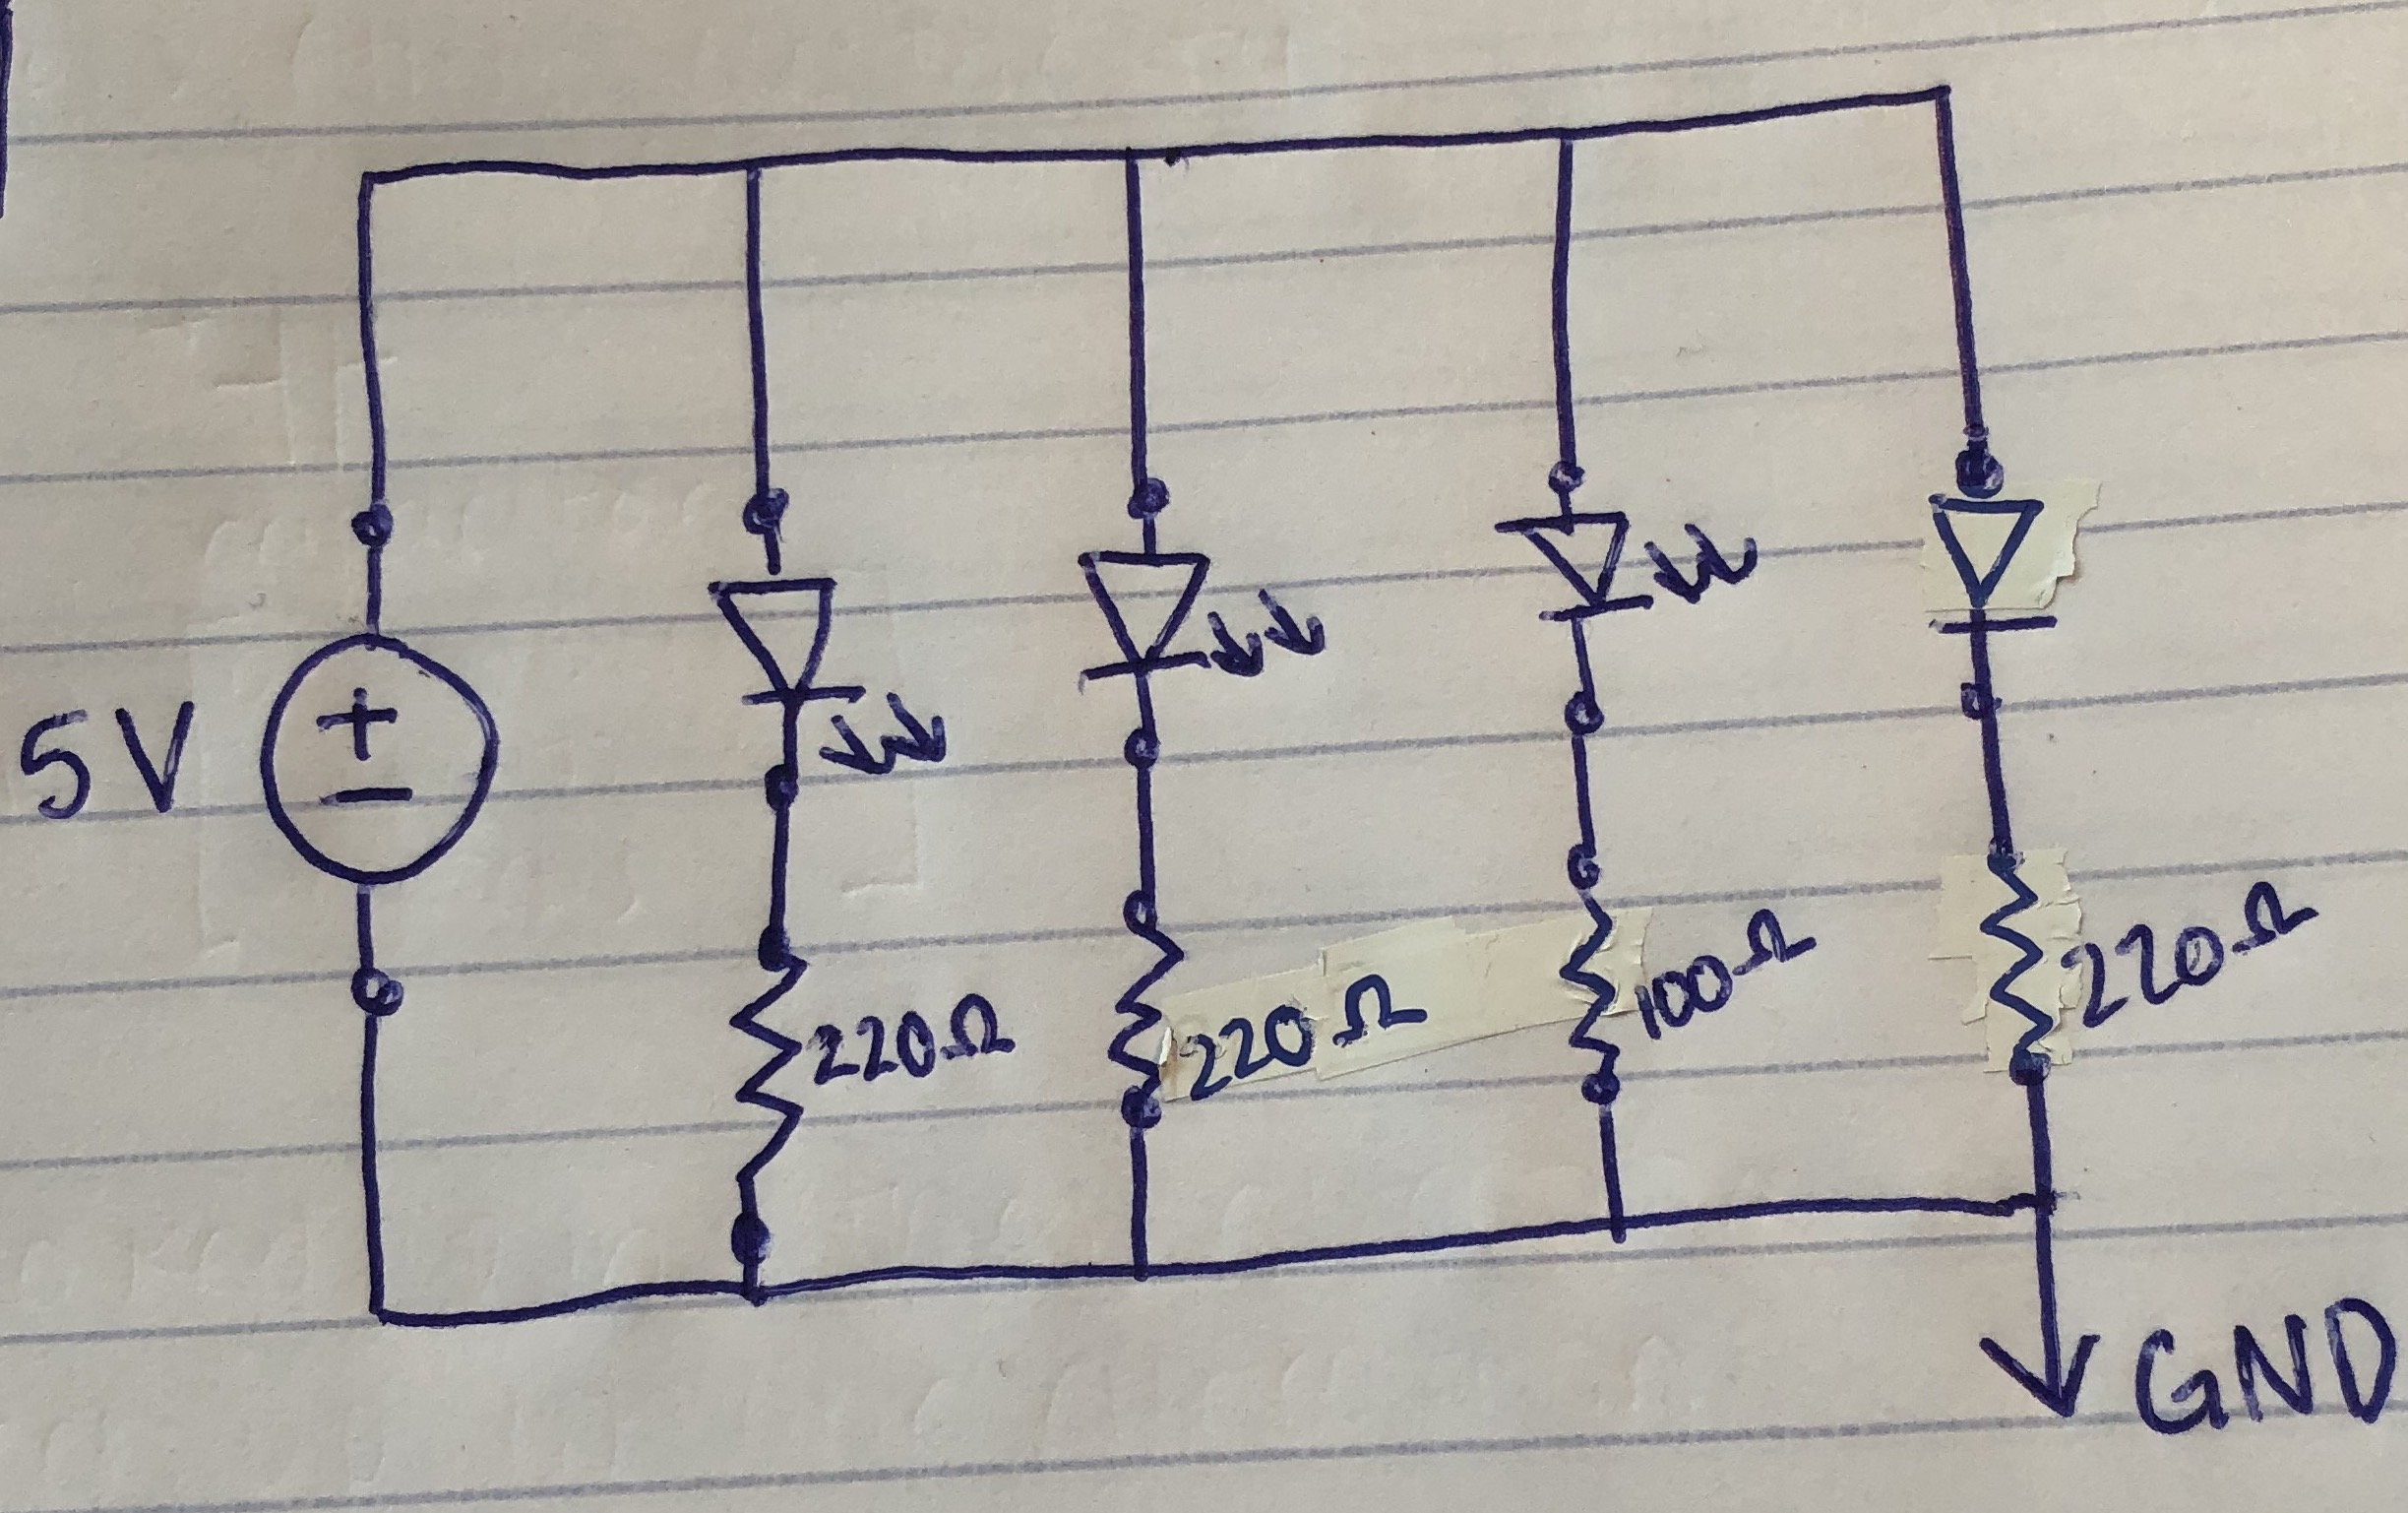 5V
+
−
220Ω
220Ω
100Ω
220Ω
GND